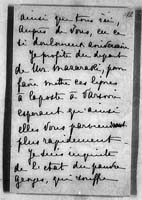 ainsi que tous ici,
Auprès de vous, en ce
si douloureux
Je profite du départ
de Mr. Mazaraki, pour
faire mettre ces lignes
à la poste à Varsovie
esperant qu'ainsi
elles vous parviendront
plus rapidement.
Je suis inquiète
de l'état du pauvre
Georges, qui souffre